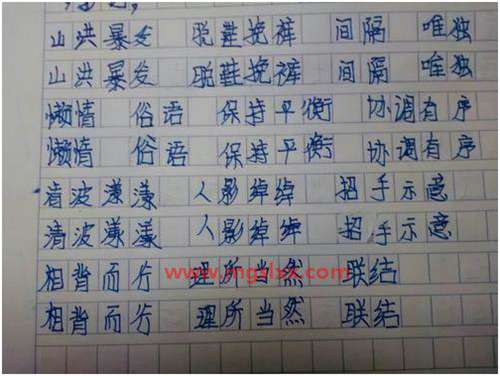 山洪暴发 脱鞋挽裤 间隔 唯独
山洪暴发 脱鞋挽裤 间隔 唯独
懒惰 俗语 保持平衡 协调有序
懒惰 俗语 保持平衡 协调有序
清波漾漾 人影绰绰 招手示意
清波漾漾 人影绰绰 招手示意
相背而行 理所当然 联结
www.mgslxx.com
相背而行 理所当然 联结